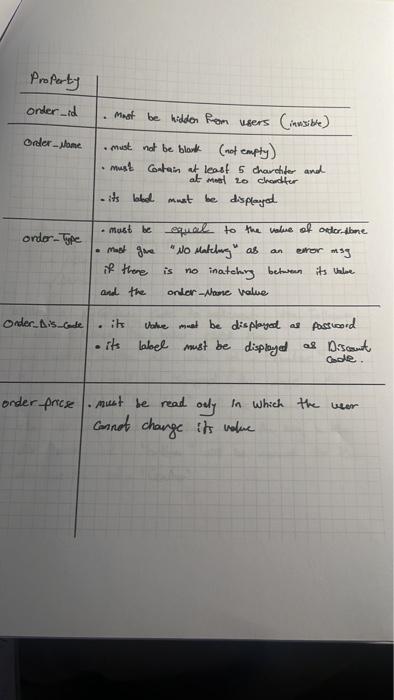 Property
order_id . must be hidden from users (invisible)
Order_Name . must not be blank (not empty)
. must contain at least 5 charchter and
at most 20 charchter
. its label must be displayed
order_Type . must be equal to the value of order_Name
. must give "No Matching" as an error msg
if there is no matching between its value
and the order_Name value
Order_Dis_Code . its value must be displayed as password
. its label must be displayed as Discount
Code.
order_price . must be read only in which the user
cannot change its value